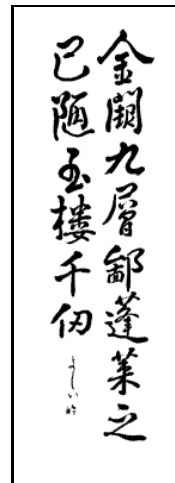 金闕九層鄙蓬莱之
已陋玉楼千仞